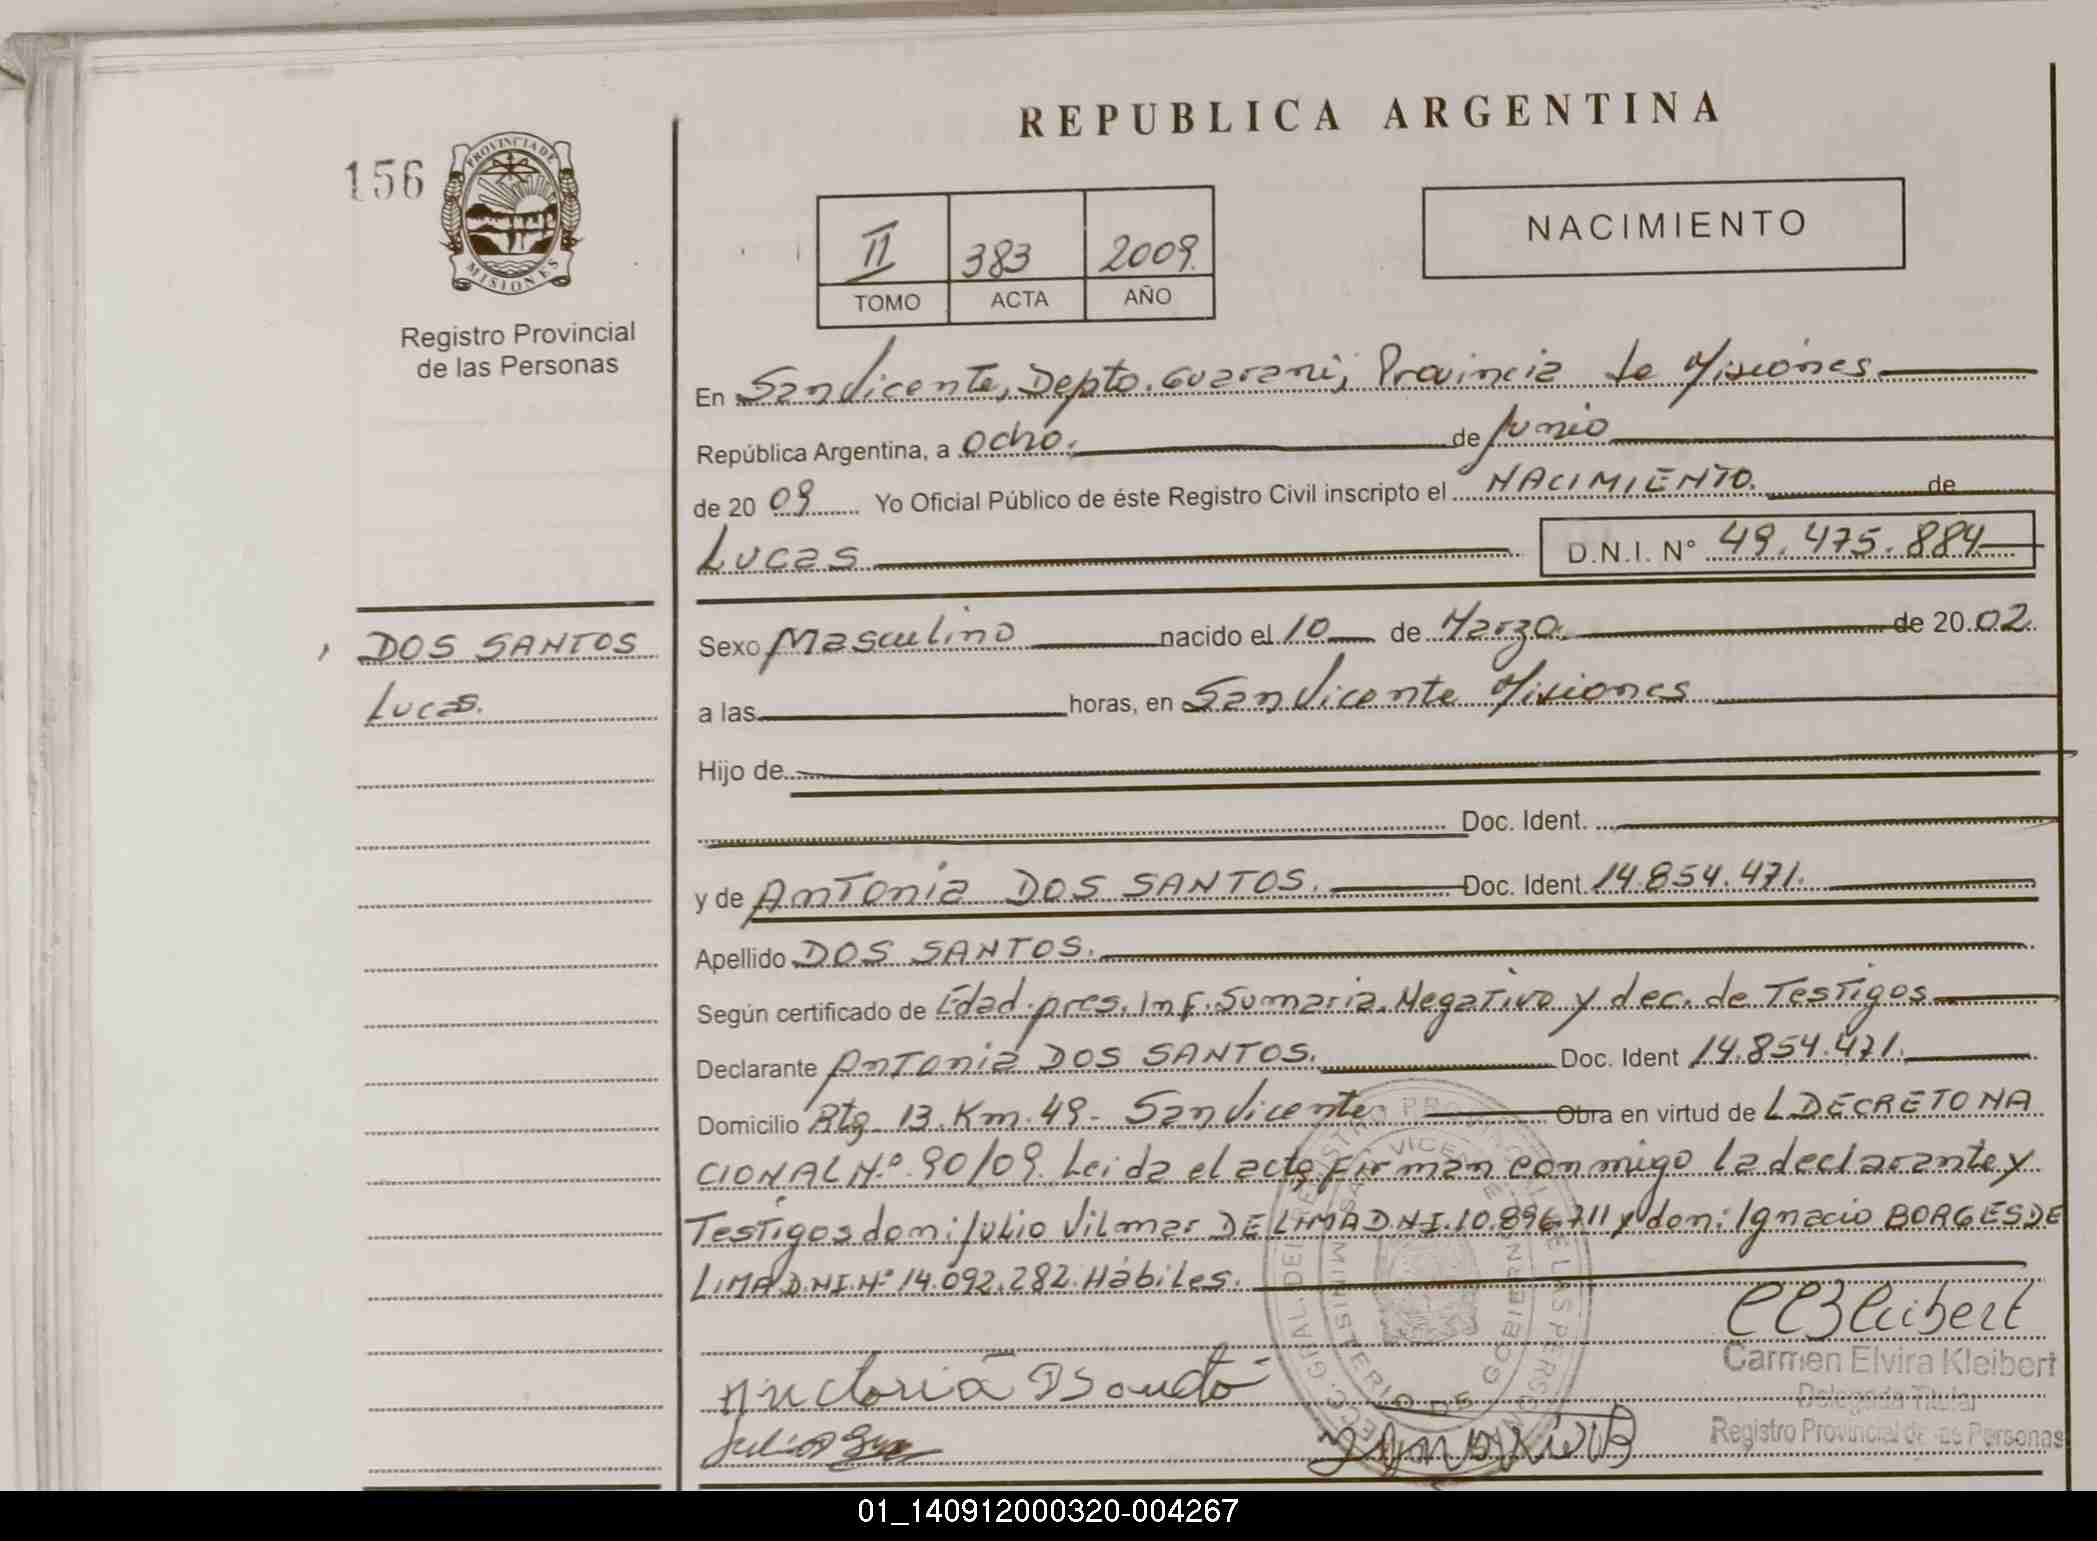 REPUBLICA ARGENTINA
156
PROVINCIA DE
MISIONES
Registro Provincial
de las Personas
II 383 2009.
TOMO ACTA AÑO
NACIMIENTO
En San Vicente, Depto. Guarani, Provincia de Misiones.
República Argentina, a ocho. de Junio
de 20 09 Yo Oficial Público de éste Registro Civil inscripto el NACIMIENTO. de
Lucas D.N.I. N° 49.475.884
DOS SANTOS
Lucas.
Sexo Masculino nacido el 10 de Marzo. de 20 02.
a las horas, en San Vicente Misiones
Hijo de
Doc. Ident.
y de Antonia DOS SANTOS. Doc. Ident. 14.854.471.
Apellido DOS SANTOS.
Según certificado de Edad pres. Inf. Sumaria. Negativo y dec. de Testigos
Declarante Antonia DOS SANTOS. Doc. Ident 14.854.471.
Domicilio Rta 13. Km. 49- San Vicente Obra en virtud de L DECRETO NA
CIONAL N.° 90/09. Leida el acta, Firman conmigo la declarante y
Testigos don: Julio Vilmar DE LIMA D.N.I. 10.896.711 y don: Ignacio BORGES DE
LIMA D.N.I. N° 14.092.282. Hábiles.
Carmen Elvira Kleibert
Delegada Titular
Registro Provincial de las Personas
01_140912000320-004267